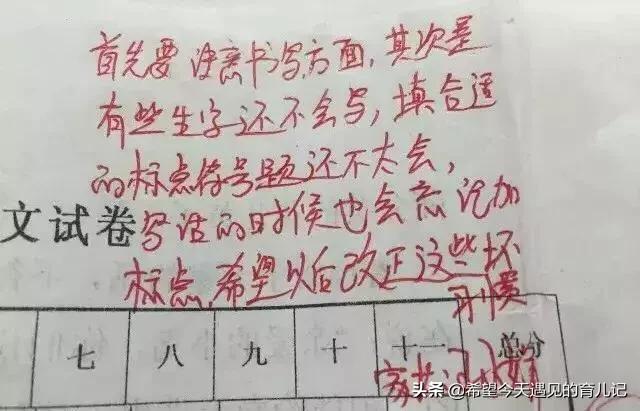 首先要注意书写方面,其次是
有些生字还不会写,填合适
的标点符号题还不太会,
文试卷
写话的时候也会忘记加
标点,希望以后改正这些坏
习惯
七 八 九 十 十一 总分
头条 @希望今天遇见的育儿记